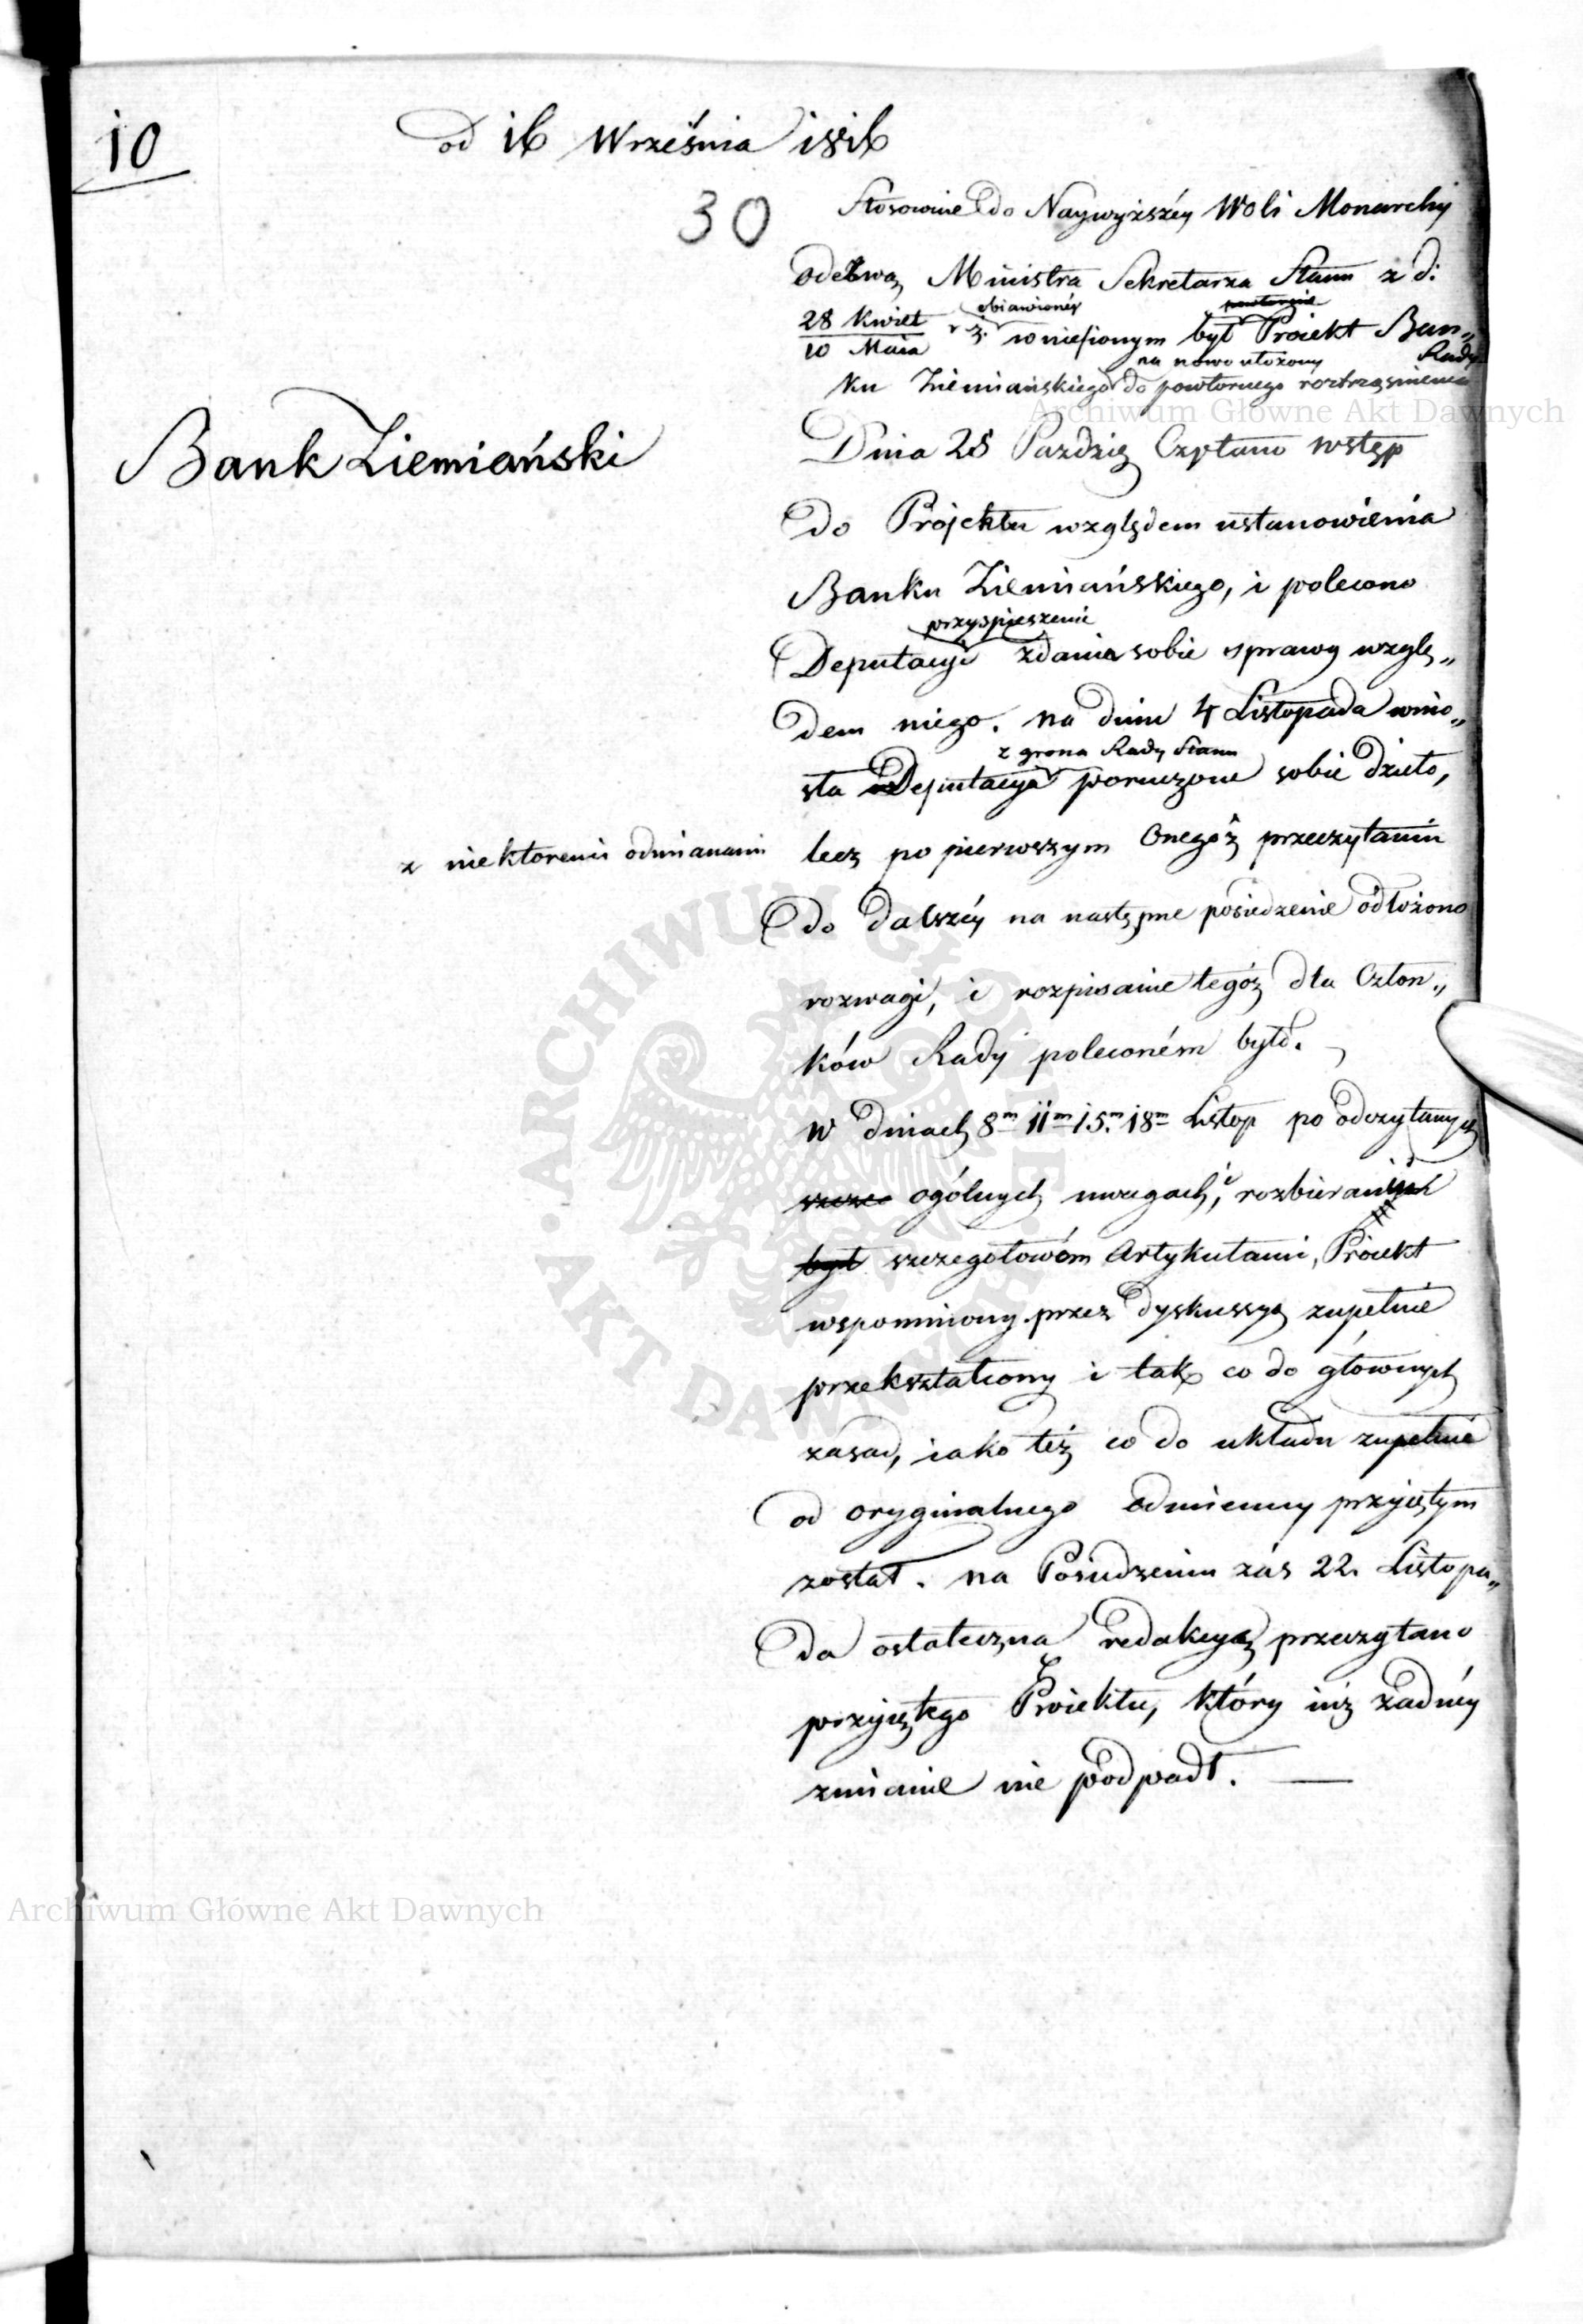 10
od 16 Września 1816
30
Stosownie do Naywyższéy Woli Monarchy
odezwą Ministra Sekretarza Stanu z d:
obiawionéy powtórnie
28 Kwiet r. z. wniesionym był Proiekt Ban„
10 Maia
na nowo ułożony Rady
ku Ziemiańskiego do powtornego roztrząśnienia
Archiwum Główne Akt Dawnych
Bank Ziemiański
Dnia 28 Paźdzrz Czytano wstęp
do Projektu względem ustanowienia
Banku Ziemiańskiego, i polecono
przyspieszenie
Deputacyi zdania sobie sprawy wzglę„
dem niego. na dniu 4 Listopada wnio„
z grona Rady Stanu
sła Deputacya poruczone sobie dzieło,
z niektoremi odmianami
lecz po pierwszym Onegóż przeczytaniu
do dalszéy na następne posiedzenie odłożono
rozwagi, i rozpisanie tegóż dla Człon„
ków Rady poleconém było.
w dniach 8m 11m 15m 18m Listop po odczytanych
ogólnych uwagach, i rozbieraniu
był szczegołowém Artykułami, Proiekt
wspomniony przez dyskussyą zupełnie
przekształcony i tak co do głównych
zasad, iako też co do układu zupełnie
od oryginalnego odmienny przyiętym
został. na Posiedzeniu zaś 22. Listopa„
da ostateczna redakcyą przeczytano
przyiętego Proiektu, który iuż żadnéy
zmianie nie podpadł.
ARCHIWUM GŁÓWNE AKT DAWNYCH
Archiwum Główne Akt Dawnych